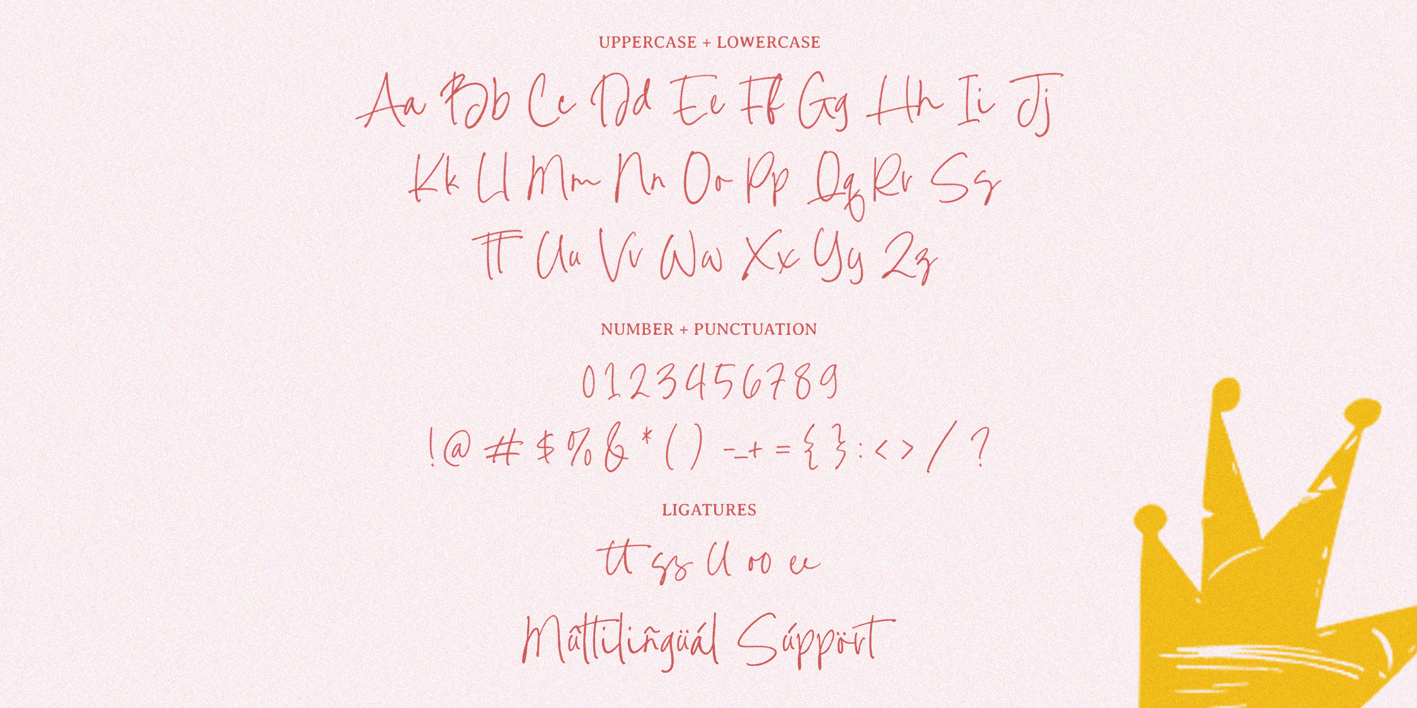 UPPERCASE + LOWERCASE
Aa Bb Cc Dd Ee Ff Gg Hh Ii Jj
Kk Ll Mm Nn Oo Pp Qq Rr Ss
Tt Uu Vv Ww Xx Yy Zz
NUMBER + PUNCTUATION
0123456789
!@ # $ % & * ( ) -_+ = { } : < > / ?
LIGATURES
tt ss ll oo ee
Mûttiliñgüál Súppört